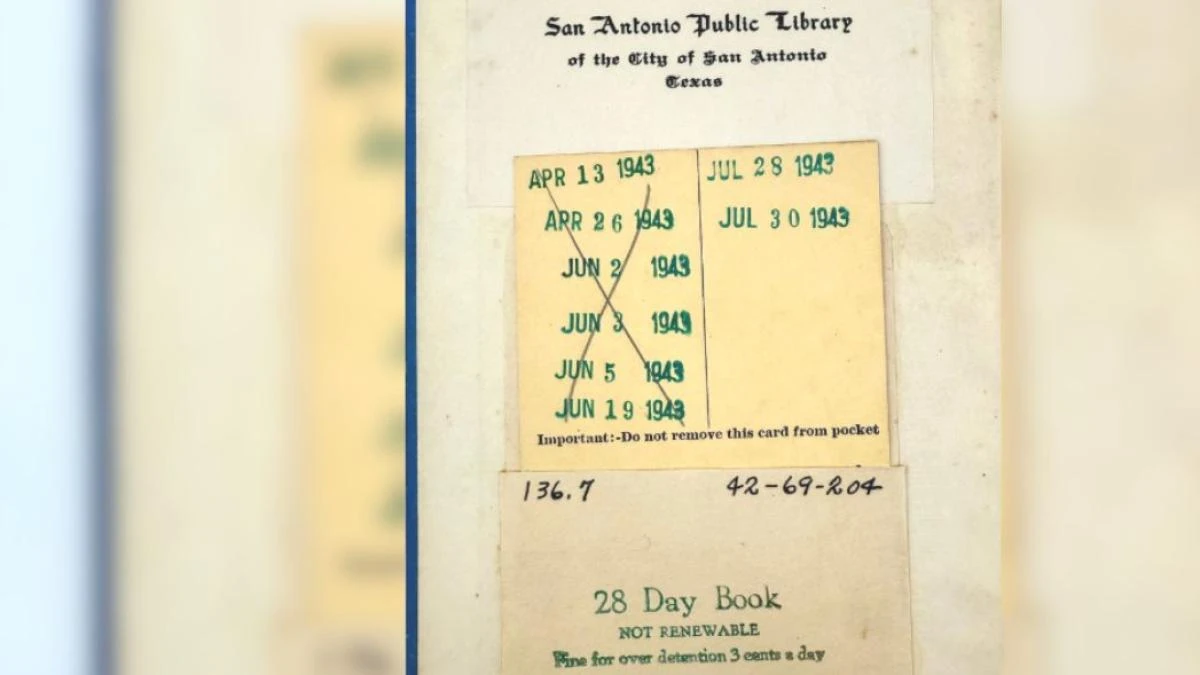 San Antonio Public Library
of the City of San Antonio
Texas
APR 13 1943
APR 26 1943
JUN 2 1943
JUN 3 1943
JUN 5 1943
JUN 19 1943
JUL 28 1943
JUL 30 1943
Important:-Do not remove this card from pocket
136.7 42-69-204
28 Day Book
NOT RENEWABLE
Fine for over detention 3 cents a day